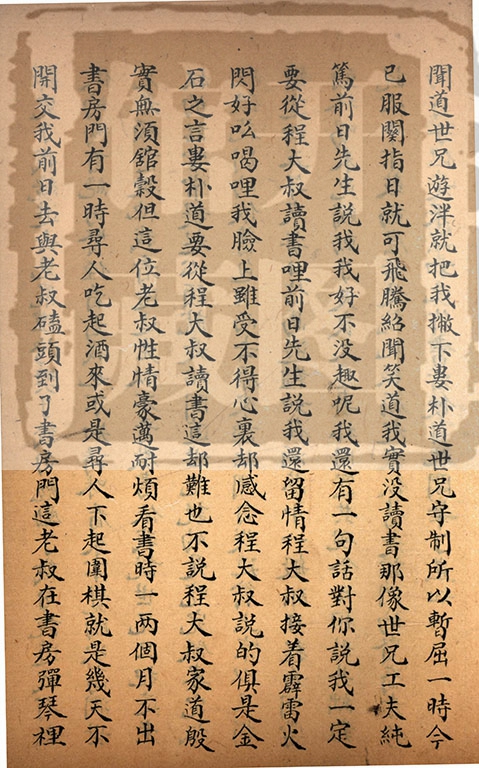 聞道世兄遊泮就把我撇下婁朴道世兄守制所以暫屈一時今
已服闋指日就可飛騰紹聞笑道我實没讀書那像世兄工夫純
篤前日先生説我我好不没趣呢我還有一句話對你説我一定
要從程大叔讀書哩前日先生説我還留情程大叔接着霹雷火
閃好吆喝哩我臉上雖受不得心裏却感念程大叔説的俱是金
石之言婁朴道要從程大叔讀書這却難也不説程大叔家道殷
實無須舘穀但這位老叔性情豪邁耐煩看書時一两個月不出
書房門有一時尋人吃起酒來或是尋人下起圍棋就是幾天不
開交我前日去與老叔磕頭到了書房門這老叔在書房彈琴裡